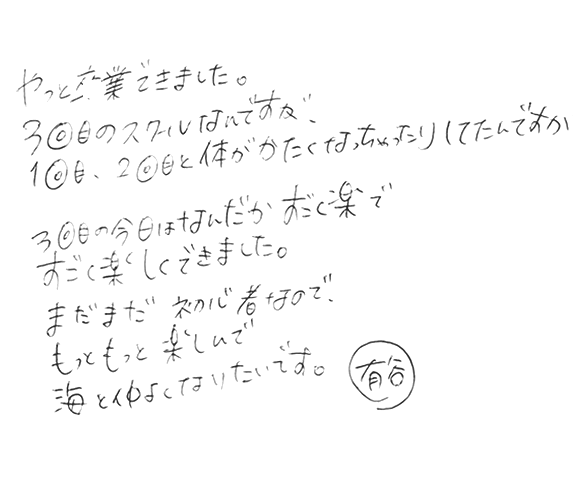 やっと卒業できました。
3回目のスクールなんですが、
1回目、2回目と体がかたくなっちゃったりしてたんですが
3回目の今日はなんだかすごく楽で
すごく楽しくできました。
まだまだ初心者なので、
もっともっと楽しんで
海と仲よくなりたいです。
有谷